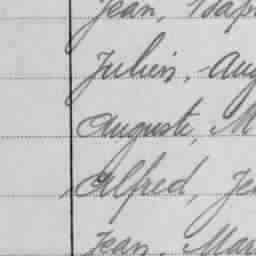 Jean, Bap
Julien, Aug
Auguste, M
Alfred, Je
Jean, Mar